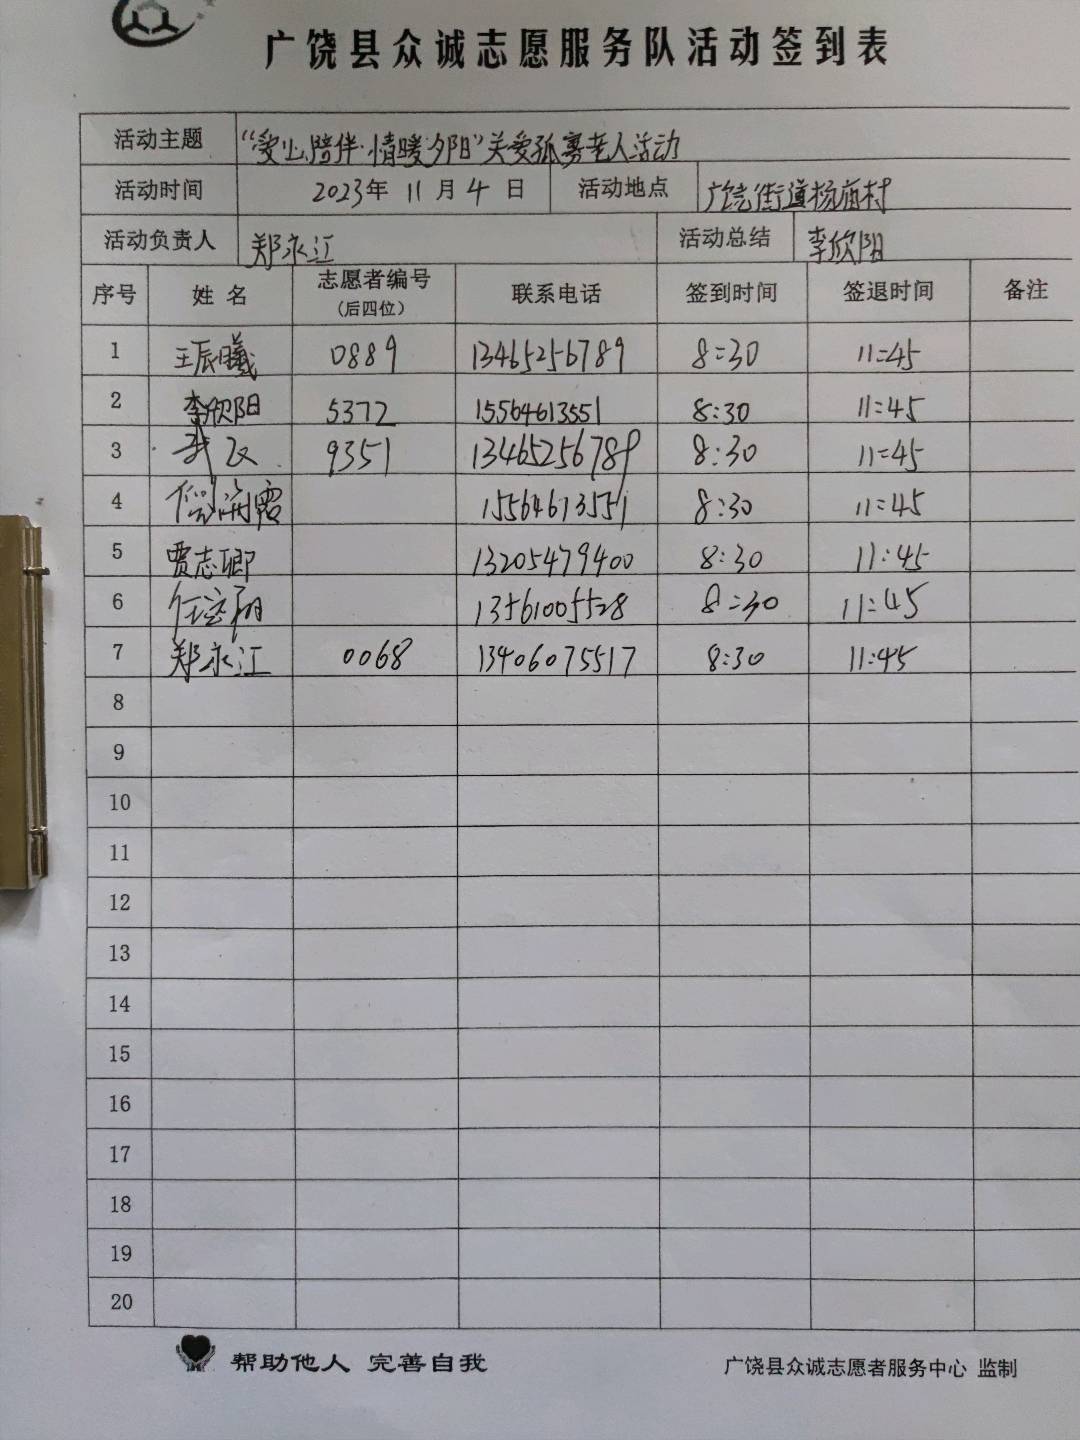 广饶县众诚志愿服务队活动签到表
活动主题 “爱心陪伴·情暖夕阳”关爱孤寡老人活动
活动时间 2023年 11 月 4 日 活动地点 广饶街道杨庙村
活动负责人 郑永江 活动总结 李欣阳
序号 姓 名 志愿者编号 (后四位) 联系电话 签到时间 签退时间 备注
1 王辰曦 0889 13465256789 8:30 11:45
2 李欣阳 5372 15564613551 8:30 11:45
3 9351 13465256789 8:30 11:45
4 15564613551 8:30 11:45
5 贾志卿 13205479400 8:30 11:45
6 13561005528 8:30 11:45
7 郑永江 0068 13406075517 8:30 11:45
8
9
10
11
12
13
14
15
16
17
18
19
20
帮助他人 完善自我
广饶县众诚志愿者服务中心 监制